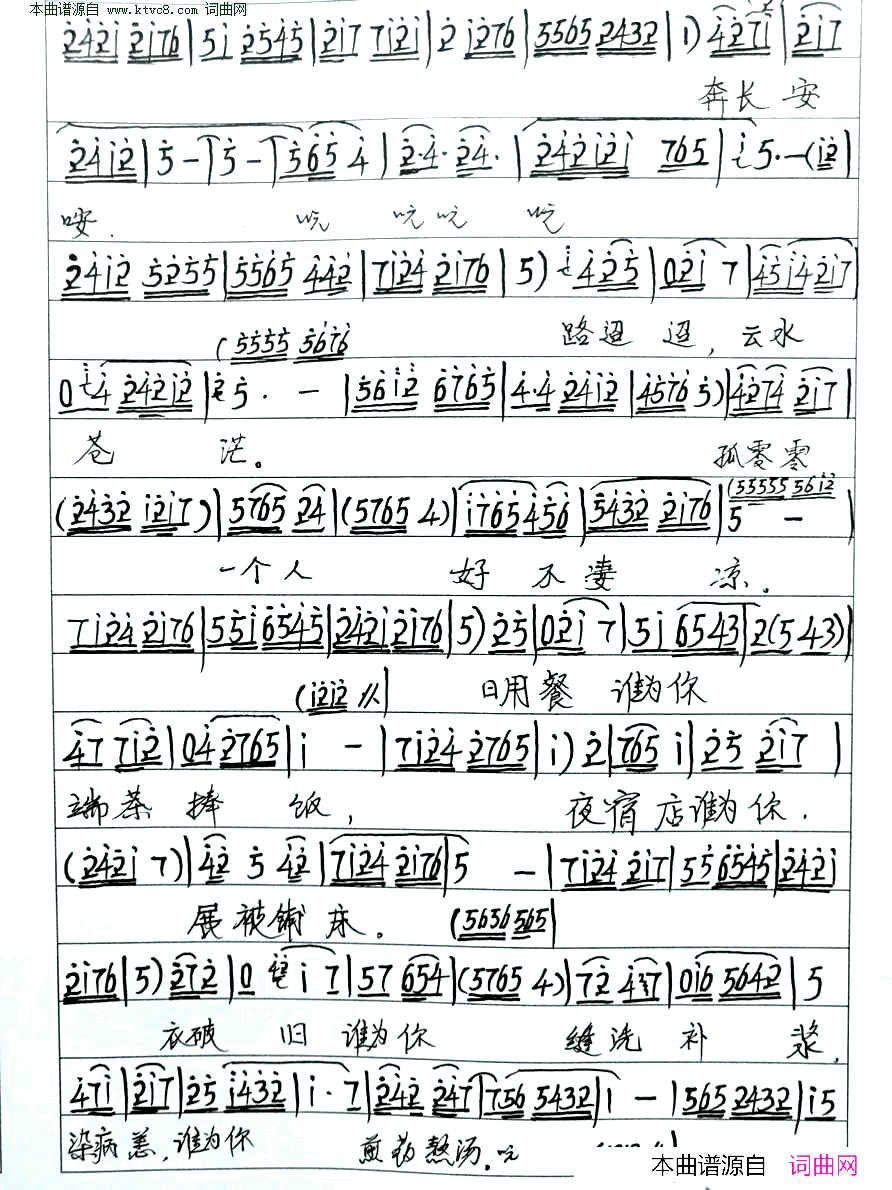 本曲谱源自 www.ktvc8.com 词曲网
2421 2176 | 51 2545 | 217 7121 | 2 1276 | 5565 2432 | 1) 4271 | 217
奔长安
2412 | 5 - | 5 - | 565 4 | 2·4· 24· | 242121 765 | 5·—(12 |
2412 5255 | 5565 442 | 7124 2176 | 5) 425 | 021 7 | 4514217
(5555 5676 路迢迢,云水
04 24212 | 5· — | 5612 6765 | 4·4 2412 | 4576 5) | 4274 217 |
苍 茫。 孤零零
(2432 1217) | 5765 24 | (5765 4) | 1765456 | 5432 2176 | 5 — |
(55555 5612
一个人 好不凄凉.
7124 2176 | 5516545 | 24212176 | 5) 25 | 021 7 | 51 6543 | 2(543)
(1212 //| 日用餐 谁为你
47 712 | 04 2765 | 1 — | 7124 2765 | 1) 2 | 765 1 | 25 217 |
端茶捧饭, 夜宿店谁为你.
(2421 7) | 42 5 42 | 7124 2176 | 5 — | 7124 217 | 55 6545 | 2421
展被铺床。 (5656 565|
2176 | 5) 272 | 0 1 7 | 57 654 | (5765 4) | 72 47 | 016 5642 | 5
衣破旧谁为你 缝洗补浆,
471 | 217 | 25 1432 | 1·7 | 242 247 | 756 5432 | 1 — | 565 2432 | 15
染病恙,谁为你 煎药熬汤。
本曲谱源自 词曲网